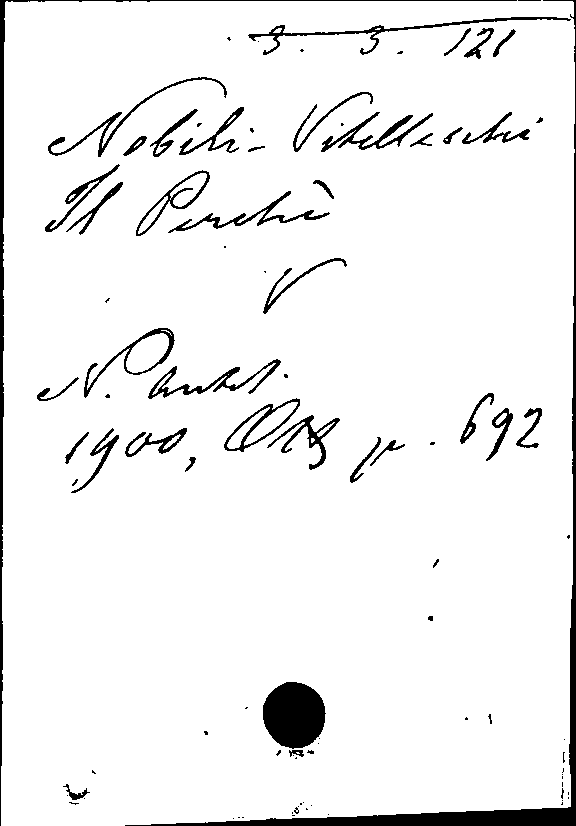 3. 3. 121
Nobili-Vitelleschi
Il Perchè
V
N. Antol.
1900, p. 692